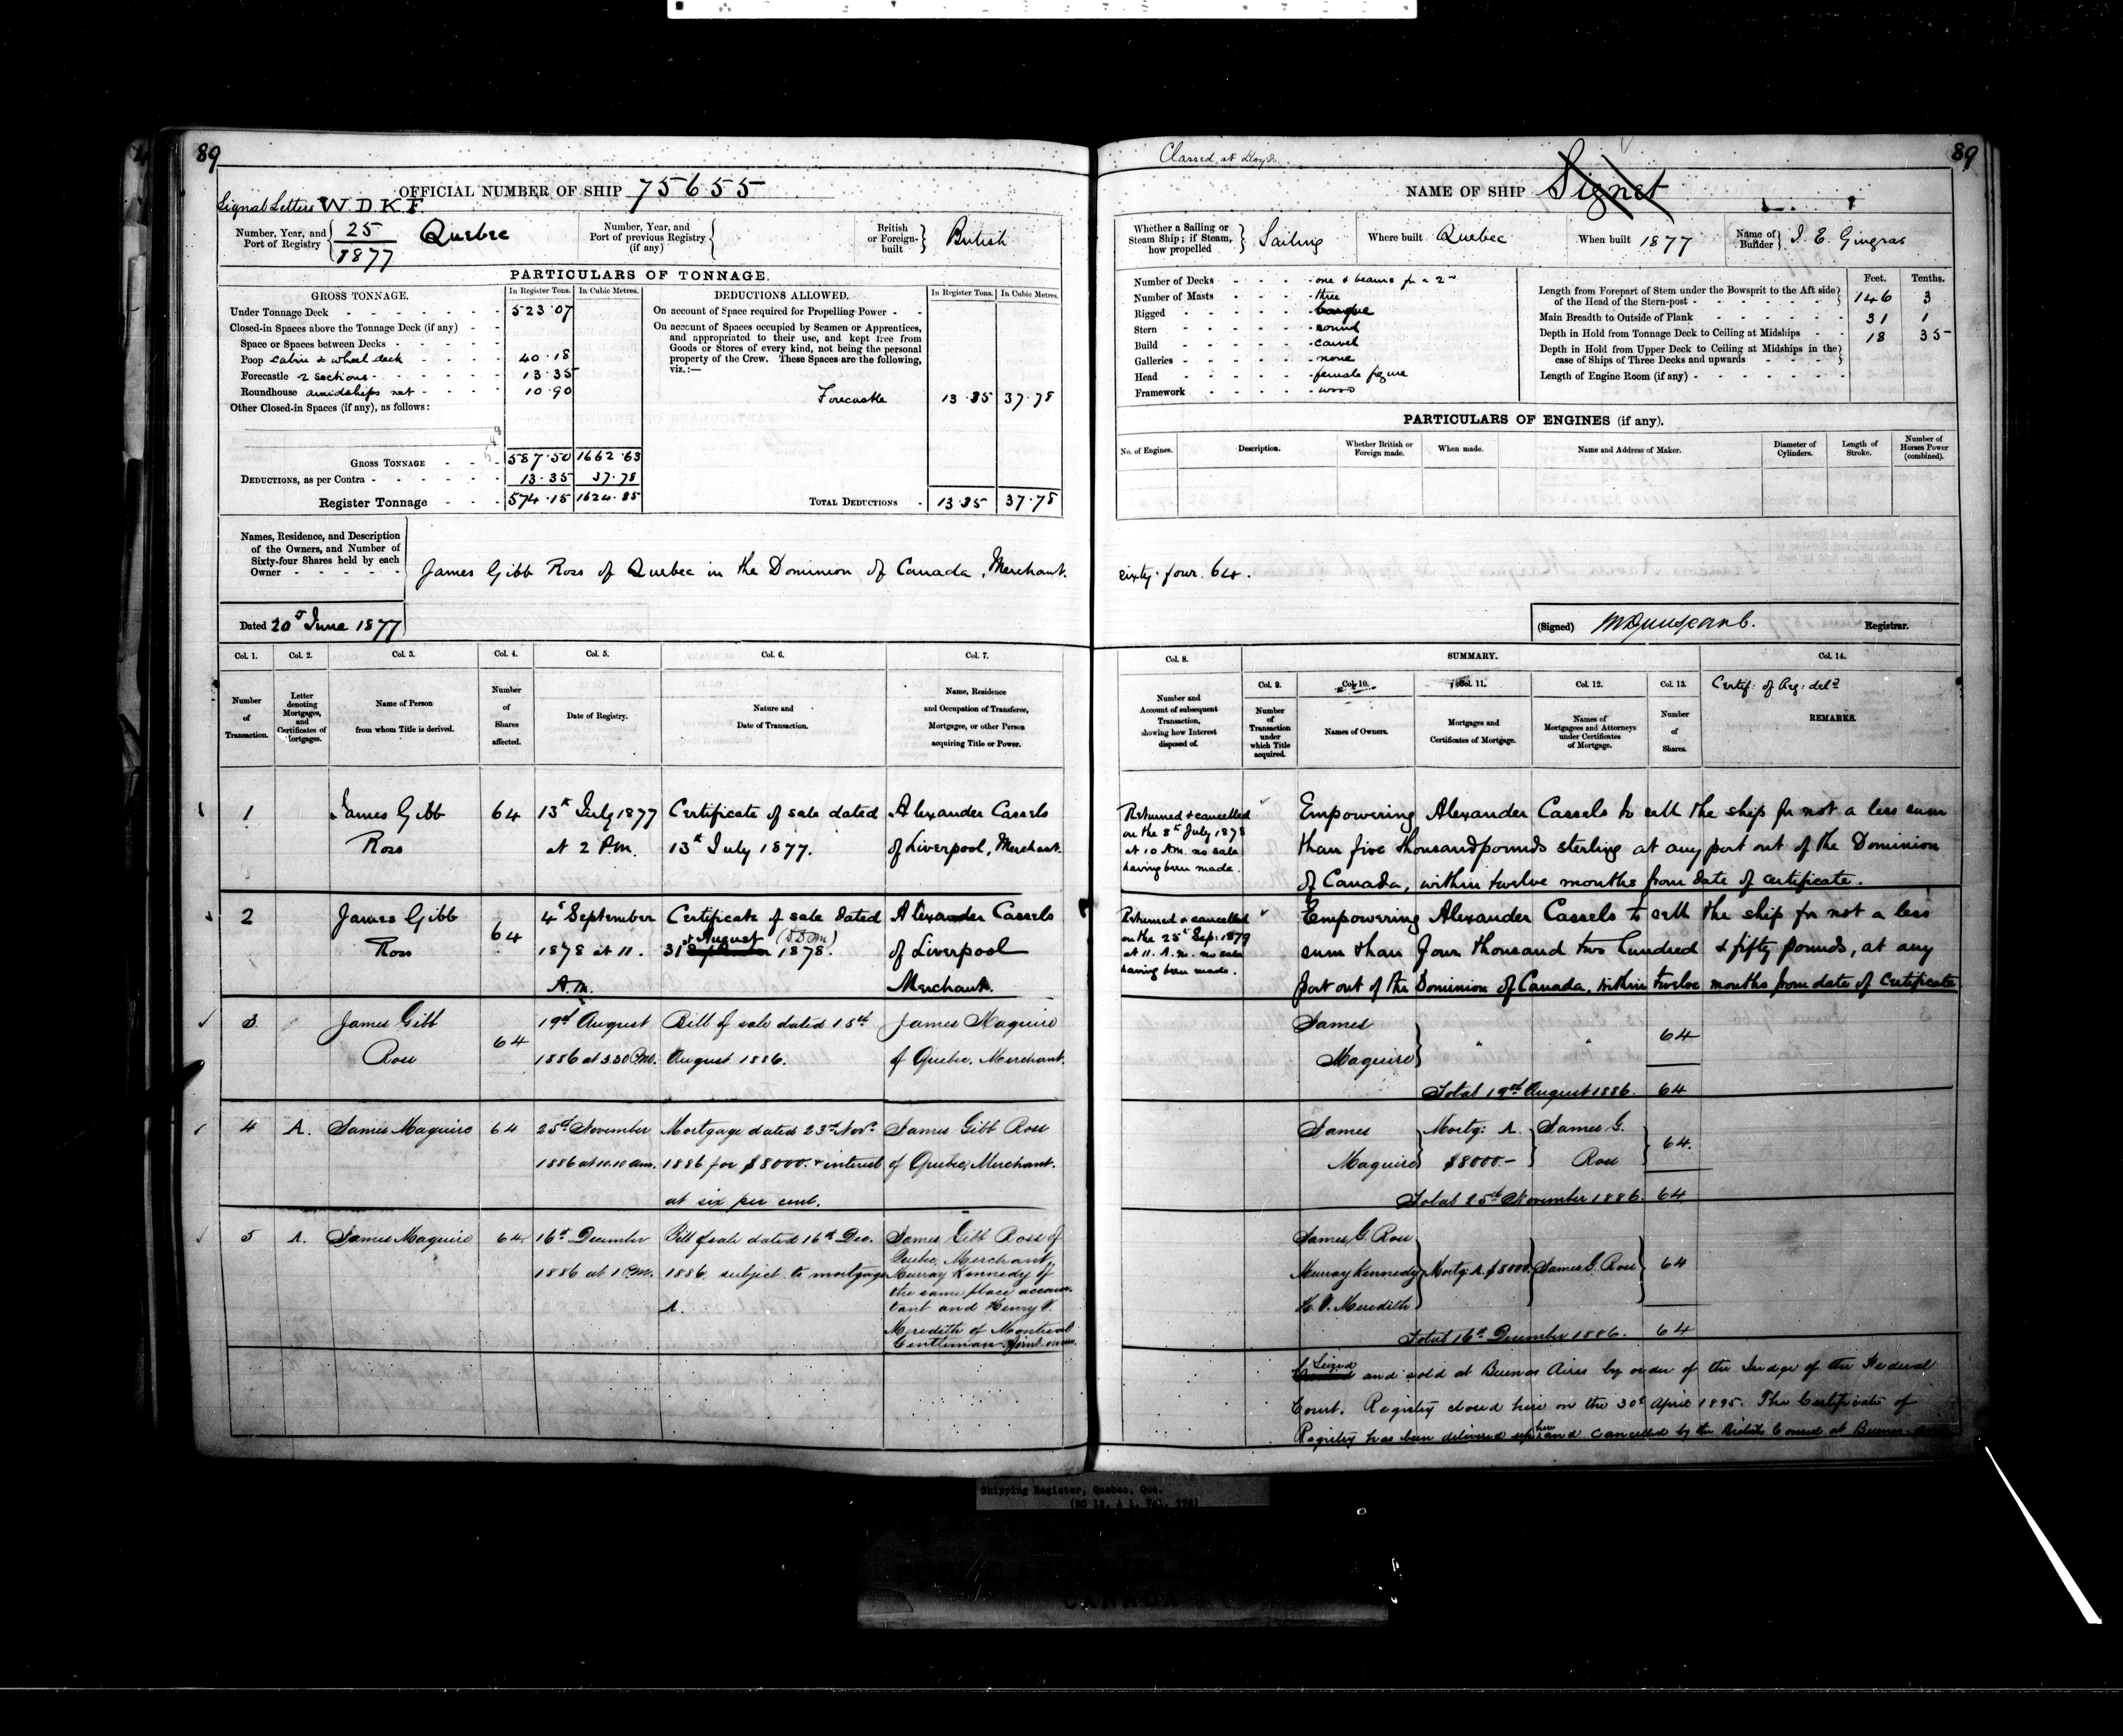 89
OFFICIAL NUMBER OF SHIP 75655
Signal Letters W.D.K.F.
Number, Year, and Port of Registry 25/1877 Quebec
Number, Year, and Port of previous Registry (if any)
British or Foreign-built British
PARTICULARS OF TONNAGE.
GROSS TONNAGE. In Register Tons. In Cubic Metres.
Under Tonnage Deck 523.07
Closed-in Spaces above the Tonnage Deck (if any)
Space or Spaces between Decks
Poop cabin & wheel deck 40.18
Forecastle 2 sections 13.35
Roundhouse amidships net 10.90
Other Closed-in Spaces (if any), as follows:
GROSS TONNAGE 587.50 1662.63
DEDUCTIONS, as per Contra 13.35 37.78
Register Tonnage 574.15 1624.85
DEDUCTIONS ALLOWED. In Register Tons. In Cubic Metres.
On account of Space required for Propelling Power
On account of Spaces occupied by Seamen or Apprentices,
and appropriated to their use, and kept free from
Goods or Stores of every kind, not being the personal
property of the Crew. These Spaces are the following,
viz.:—
Forecastle 13.35 37.78
TOTAL DEDUCTIONS 13.35 37.78
Names, Residence, and Description
of the Owners, and Number of
Sixty-four Shares held by each
Owner
James Gibb Ross of Quebec in the Dominion of Canada, Merchant.
Dated 20th June 1877
Col. 1. Col. 2. Col. 3. Col. 4. Col. 5. Col. 6. Col. 7.
Number of Transaction.
Letter denoting Mortgages, and Certificates of Mortgages.
Name of Person from whom Title is derived.
Number of Shares affected.
Date of Registry.
Nature and Date of Transaction.
Name, Residence and Occupation of Transferee, Mortgagee, or other Person acquiring Title or Power.
1 James Gibb 64 13th July 1877 Certificate of sale dated Alexander Cassels
Ross at 2 P.M. 13th July 1877. of Liverpool, Merchant.
2 James Gibb 64 4th September Certificate of sale dated Alexander Cassels
Ross 1878 at 11. 31st August September 1878. of Liverpool
A.M. Merchant.
3 James Gibb 64 19th August Bill of sale dated 18th James Maguire
Ross 1886 at 3.30 P.M. August 1886. of Quebec, Merchant.
4 A. James Maguire 64 25th November Mortgage dated 23rd Novr. James Gibb Ross
1886 at 10.10 a.m. 1886 for $8000. & interest of Quebec, Merchant.
at six per cent.
5 A. James Maguire 64 16th December Bill of sale dated 16th Dec. James Gibb Ross of
Quebec, Merchant,
1886 at 1 P.M. 1886 subject to mortgage Murray Kennedy of
the same place accoun-
A. tant and Henry V.
Meredith of Montreal
Gentleman Joint owners.
89
Classed at Lloyds
NAME OF SHIP Signet
Whether a Sailing or Steam Ship; if Steam, how propelled Sailing
Where built Quebec
When built 1877
Name of Builder J. E. Gingras
Number of Decks one & beams for a 2nd
Number of Masts three
Rigged barque
Stern round
Build carvel
Galleries none
Head female figure
Framework wood
Feet. Tenths.
Length from Forepart of Stem under the Bowsprit to the Aft side of the Head of the Stern-post 146 3
Main Breadth to Outside of Plank 31 1
Depth in Hold from Tonnage Deck to Ceiling at Midships 18 35
Depth in Hold from Upper Deck to Ceiling at Midships in the case of Ships of Three Decks and upwards
Length of Engine Room (if any)
PARTICULARS OF ENGINES (if any).
No. of Engines. Description. Whether British or Foreign made. When made. Name and Address of Maker. Diameter of Cylinders. Length of Stroke. Number of Horses Power (combined).
sixty-four. 64.
(Signed) Registrar.
Col. 8. SUMMARY. Col. 14.
Col. 9. Col. 10. Col. 11. Col. 12. Col. 13.
Certif: of Reg: deld
Number and Account of subsequent Transaction, showing how Interest disposed of.
Number of Transaction under which Title acquired.
Names of Owners.
Mortgages and Certificates of Mortgage.
Names of Mortgagees and Attorneys under Certificates of Mortgage.
Number of Shares.
REMARKS.
Returned & cancelled
on the 8th July 1878
at 10 A.M. no sale
having been made.
Empowering Alexander Cassels to sell the ship for not a less sum
than five thousand pounds sterling at any port out of the Dominion
of Canada, within twelve months from date of certificate.
Returned & cancelled
on the 25th Sep: 1879
at 11. A.M. no sale
having been made.
Empowering Alexander Cassels to sell the ship for not a less
sum than four thousand two hundred & fifty pounds, at any
port out of the Dominion of Canada, within twelve months from date of certificate
James
Maguire " " 64
Total 19th August 1886. 64
James Mortg: A. James G.
Maguire $8000.- Ross 64.
Total 25th November 1886. 64.
James G. Ross
Murray Kennedy Mortg: A. $8000. James G. Ross 64
H. V. Meredith
Total 16th December 1886. 64
Seized and sold at Buenos Aires by order of the Judge of the Federal
Court. Registry closed here on the 30th April 1895. The Certificate of
Registry has been delivered up here and cancelled by the British Consul at Buenos Aires
Shipping Register, Quebec, Que.
CANADA